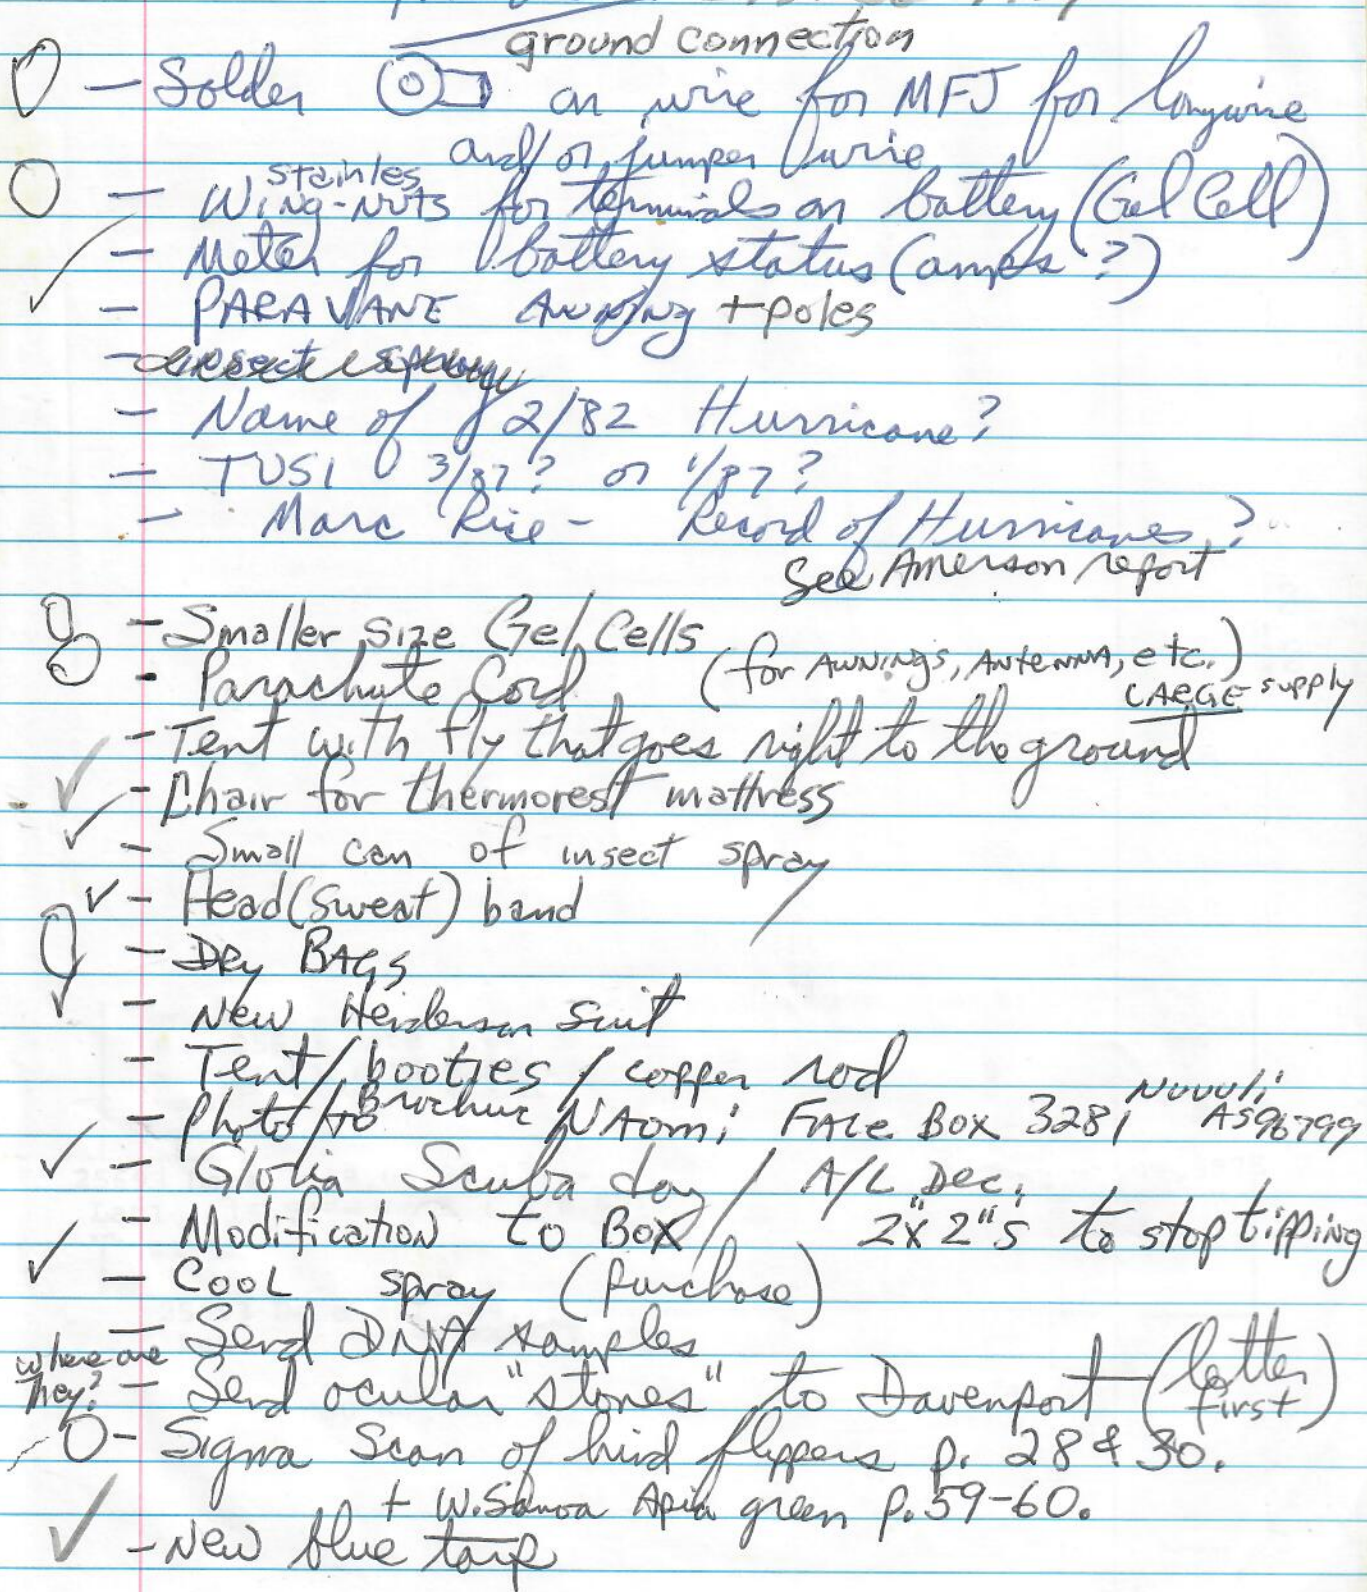 ground connection
- Solder on wire for MFJ for longwire
and/or jumper wire
stainles
- Wing-nuts for terminals on battery (Gel Cell)
- Meter for battery status (amps?)
- PARAVANE Awning + poles
- insect spray
- Name of 2/82 Hurricane?
- TUSI 3/87? or 1/87?
- Marc Rice - Record of Hurricanes?
See Amerson report
- Smaller size Gel Cells
- Parachute Cord (for AWNINGS, ANTENNA, etc.)
LARGE supply
- Tent with fly that goes right to the ground
- Chair for thermorest mattress
- Small can of insect spray
- Head (sweat) band
- Dry BAGS
- New Henderson Suit
- Tent / booties / copper rod
- Photo / to Brochure NAOMI FALE BOX 3281 Nuuuli AS96799
- Gloria Scuba day / A/L Dec.
- Modification to Box / 2"x2"s to stop tipping
- COOL spray (purchase)
- Send DNA samples
where are they? - Send ocular "stones" to Davenport (letter first)
- Sigma Scan of hind flippers p. 28 & 30.
+ W. Samoa Apia green p. 59-60.
- New blue tarp